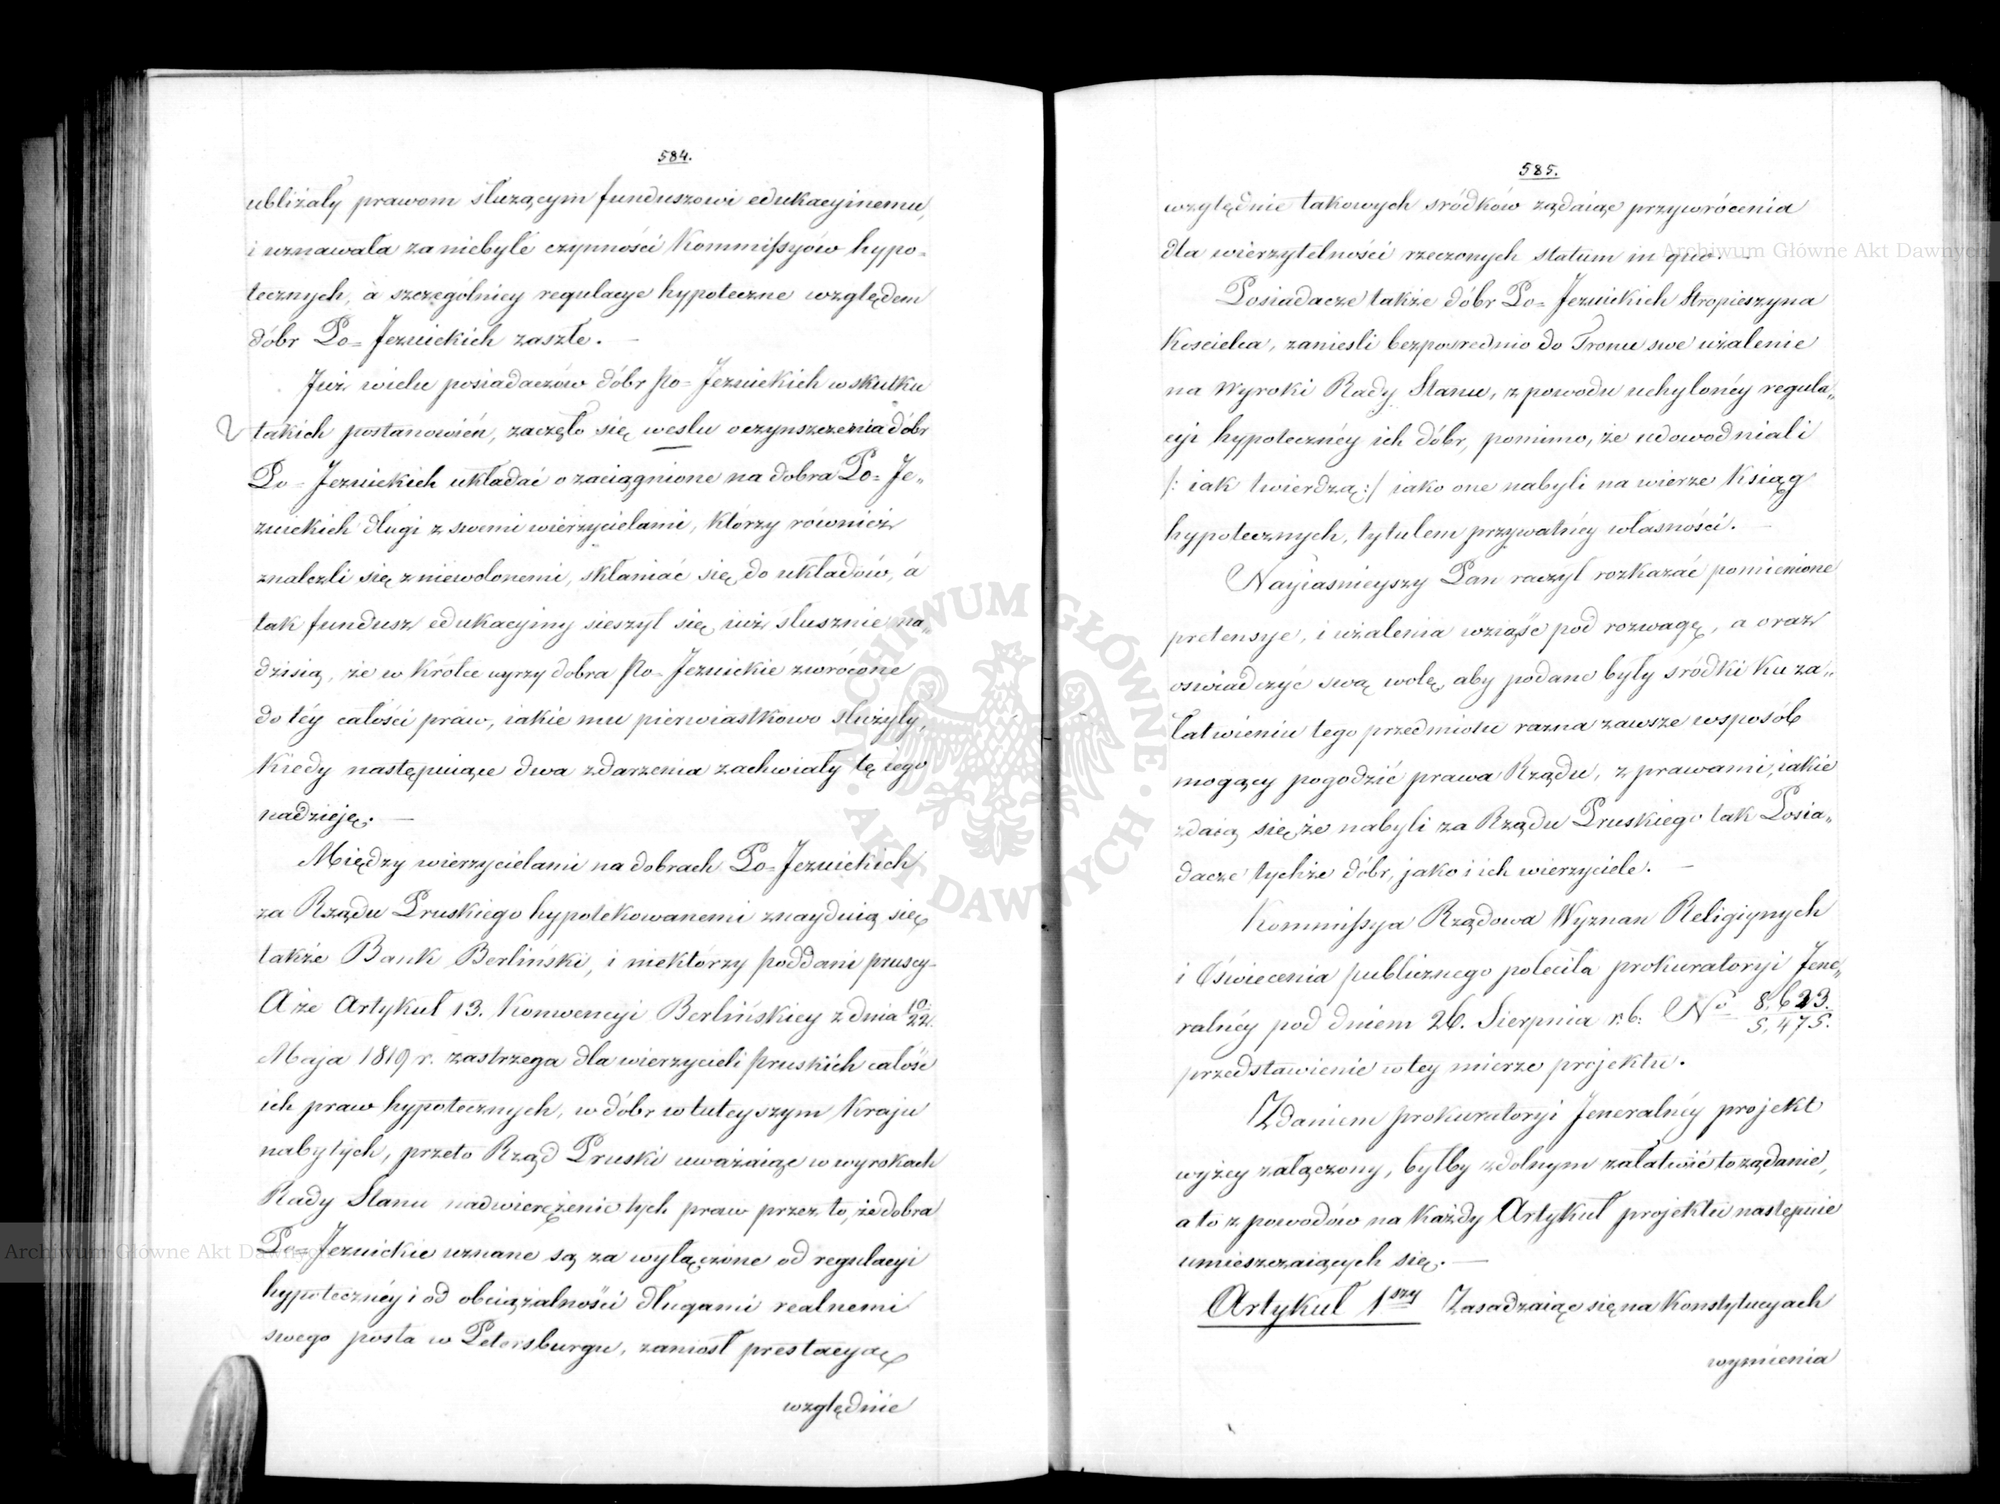 584.
ubliżały prawom służącym funduszowi edukacyinemu,
i uznawała za niebyłe czynności Kommissyów hypo-
tecznych, a szczególniey regulacye hypoteczne względem
dóbr Po-Jezuickich zaszłe. —
Już wielu posiadaczów dóbr Po-Jezuickich w skutku
takich postanowień, zaczęło się weslu oczynszczenia dóbr
Po-Jezuickich układać o zaciągnione na dobra Po-Je-
zuickich długi z swemi wierzycielami, którzy również
znaleźli się zniewolonemi, skłaniać się do układów, a
tak fundusz edukacyiny cieszył się już słusznie na-
dzieią, że w krótce uyrzy dobra Po-Jezuickie zwrócone
do téy całości praw, iakie mu pierwiastkowo służyły,
kiedy następuiące dwa zdarzenia zachwiały tę iego
nadzieię. —
Między wierzycielami na dobrach Po-Jezuickich
za Rządu Pruskiego hypotekowanemi znayduią się
także Bank Berliński, i niektórzy poddani pruscy-
A że Artykuł 13. Konwencyi Berlińskiey z dnia 10/22.
Maja 1819 r. zastrzega dla wierzycieli pruskich całość
ich praw hypotecznych, w dóbr w tuteyszym Kraju
nabytych, przeto Rząd Pruski uważaiąc w wyrokach
Rady Stanu nadwerężenie tych praw przez to, że dobra
Po-Jezuickie uznane są za wyłączone od regulacyi
hypotecznéy i od obciążalności długami realnemi
swego posła w Petersburgu, zaniosł prestacyaę
względnie
585.
względnie takowych sródków żądaiąc przywrócenia
dla wierzytelności rzeczonych statum in quo. —
Posiadacze także dóbr Po-Jezuickich Stropieszyna
Koscielca, zanieśli bezpośrednio do Tronu swe użalenie
na Wyroki Rady Stanu, z powodu uchylonéy regula-
cyi hypotecznéy ich dóbr, pomimo, że udowodniali
/: iak twierdzą :/ iako one nabyli na wierze Ksiąg
hypotecznych, tytułem prywatnéy własności. —
Nayiasnieyszy Pan raczył rozkazać pomienione
pretensye, i użalenia wziąść pod rozwagę, a oraz
oswiadczyć swą wolę, aby podane były sródki ku za-
łatwieniu tego przedmiotu raz na zawsze w sposób
mogący pogodzić prawa Rządu, z prawami, iakie
zdaią się że nabyli za Rządu Pruskiego tak Posia-
dacze tychże dóbr, jako i ich wierzyciele. —
Kommissya Rządowa Wyznan Religiynych
i Oświecenia publicznego poleciła prokuratoryi Jene-
ralnéy pod dniem 26. Sierpnia r. b. No 8,623./5,475.
przedstawienie w tey mierze projektu.
Zdaniem prokuratoryi Jeneralnéy projekt
wyżey załączony, byłby zdolnym załatwić to żądanie,
a to z powodów na każdy Artykuł projektu następnie
umieszczaiących się. —
Artykuł 1szy Zasadzaiąc się na Konstytucyach
wymienia
Archiwum Główne Akt Dawnych
Archiwum Główne Akt Dawnych
ARCHIWUM GŁÓWNE · AKT DAWNYCH ·